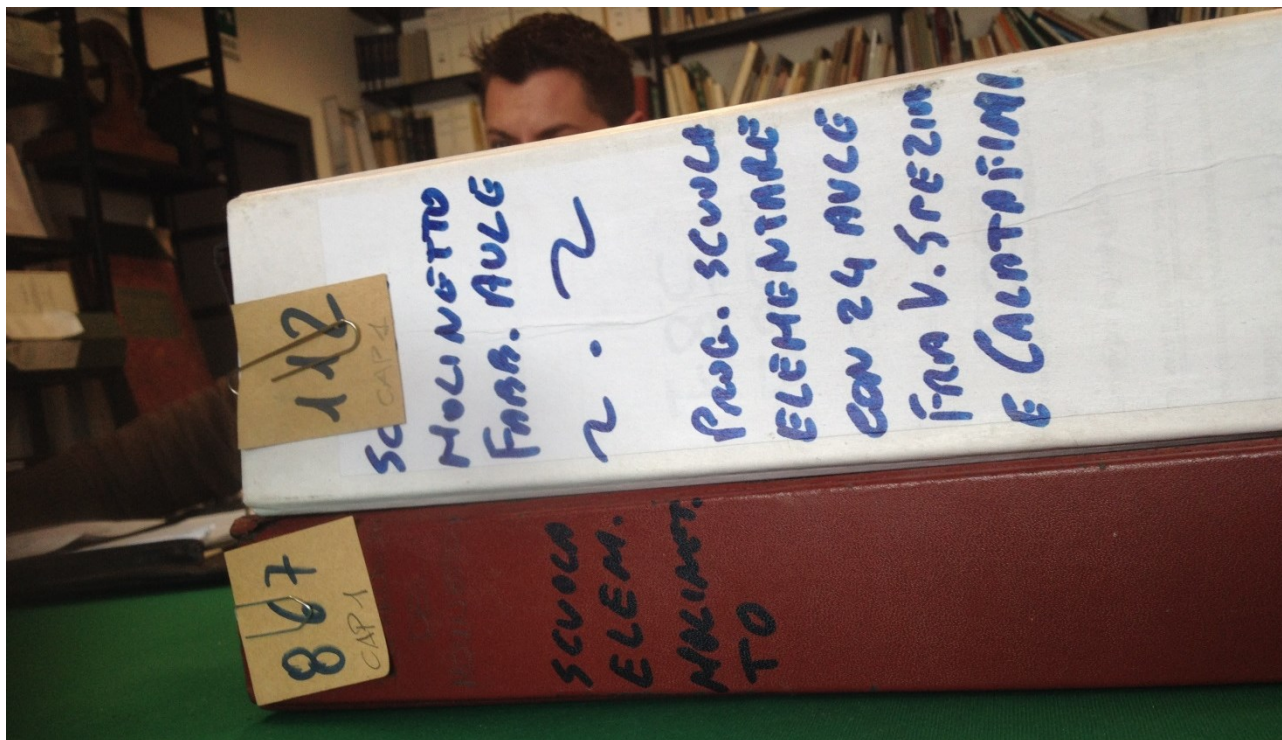 112
CAP 1
SC
MOLINETTO
FABB. AULE
~ . ~
PROG. SCUOLA
ELEMENTARE
CON 24 AULE
FRA V. SPEZIA
E CALATAFIMI
867
CAP 1
SCUOLA
ELEM.
MOLINET.
TO